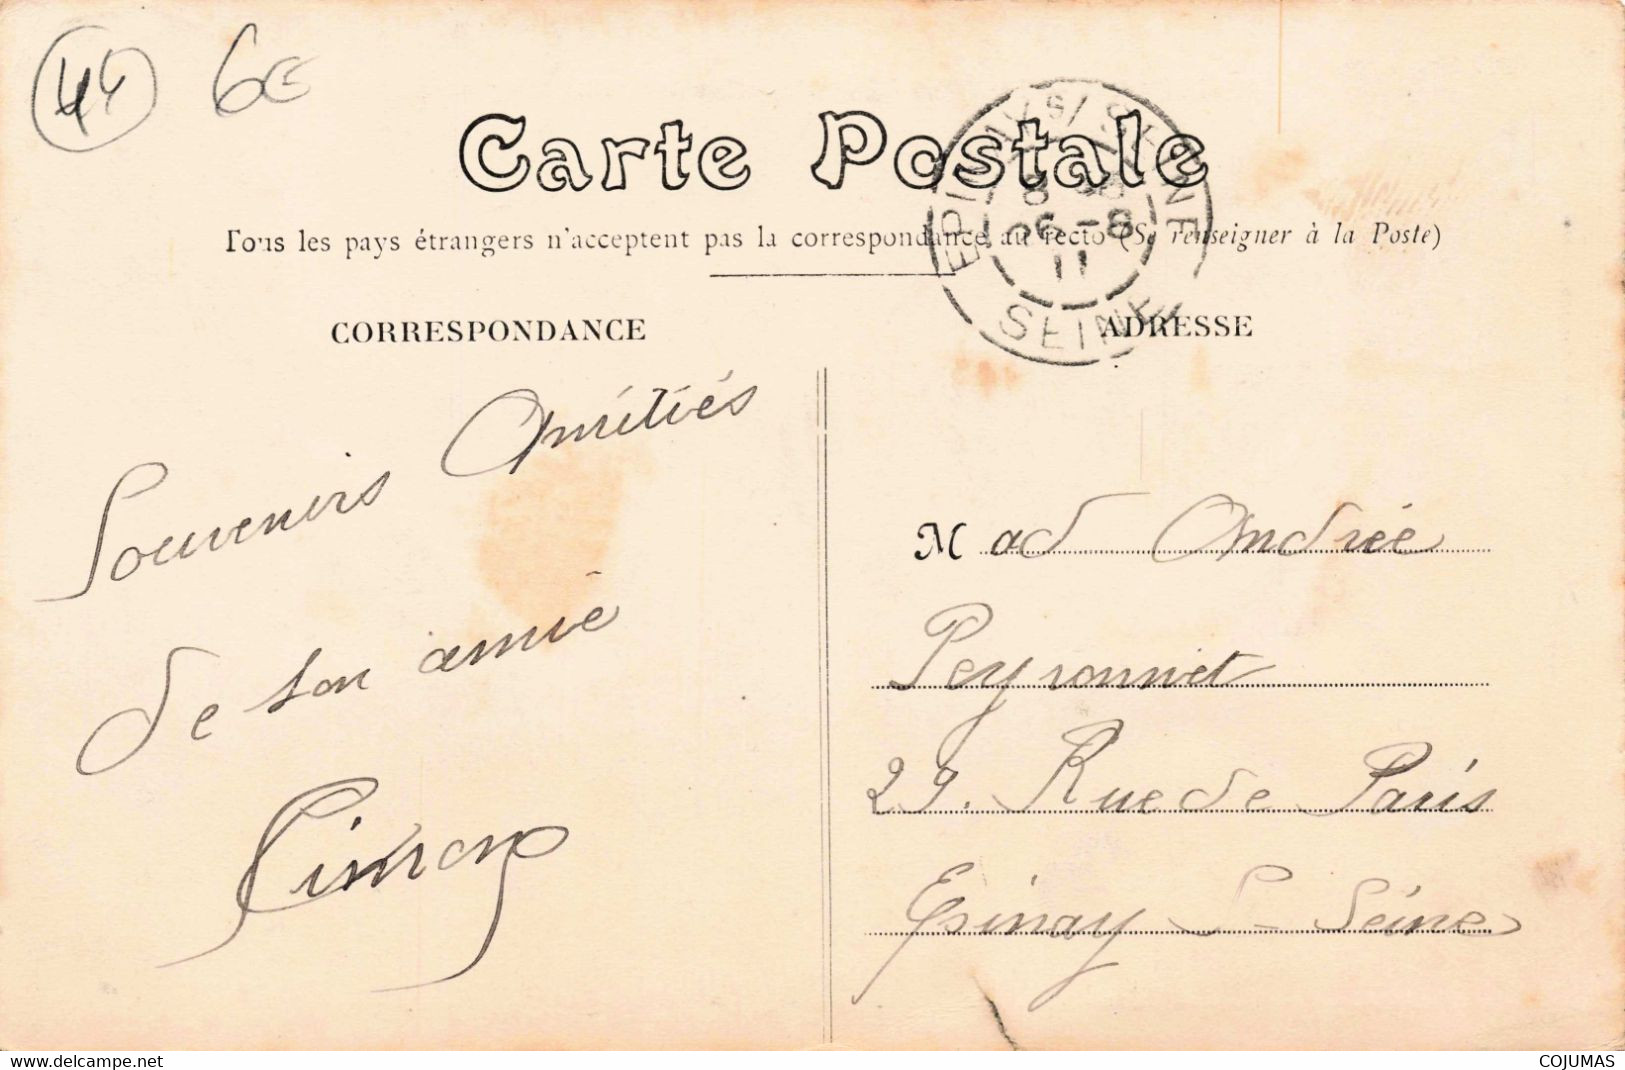 44 6€
Carte Postale
Tous les pays étrangers n'acceptent pas la correspondance au recto (Se renseigner à la Poste)
EPINAY S/ SEINE
8
26 - 8
11
SEINE
CORRESPONDANCE
Souvenirs Amitiés
de ton amie
ADRESSE
Mad Andrée
Peyronnet
29. Rue de Paris
Epinay S- Seine
www.delcampe.net
COJUMAS